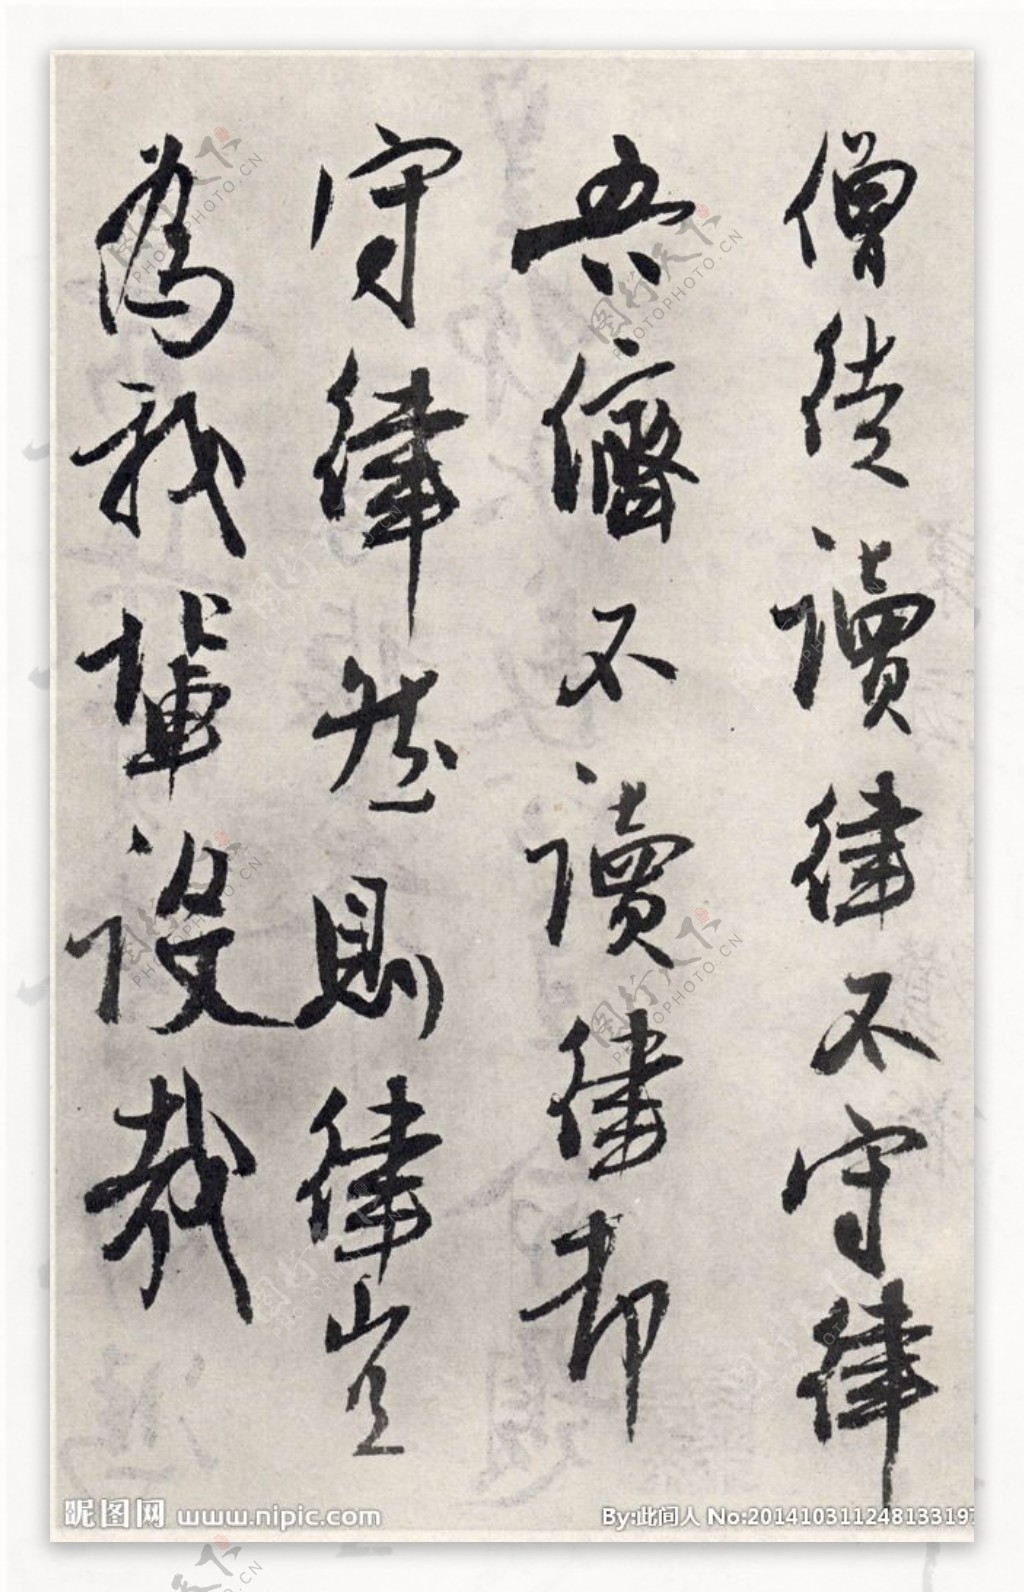 僧徒讀律不守律
吾儕不讀律却
守律然則律豈
為我輩設哉
昵图网 www.nipic.com
By:此间人 No:201410311248133197
图行天下 PHOTOPHOTO.CN